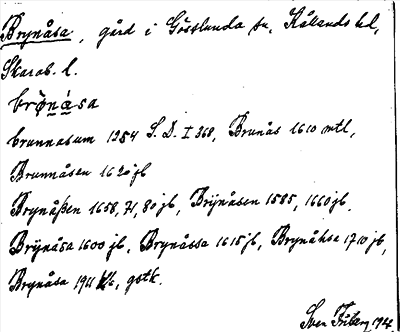 Brynåsa, gård i Gösslunda sn, Kållands hd,
Skarab. l.
brö̀ná̤sa
brunnasum 1254 S.D. I 368, Brunås 1610 mtl,
Brunnåsen 1620 jb
Brynåßen 1658, 71, 80 jb, Brÿnåsen 1585, 1660 jb,
Brÿnåsa 1600 jb, Brynåssa 1615 jb, Brynåhsa 1710 jb,
Brynåsa 1911 gstk.
Sven Friberg